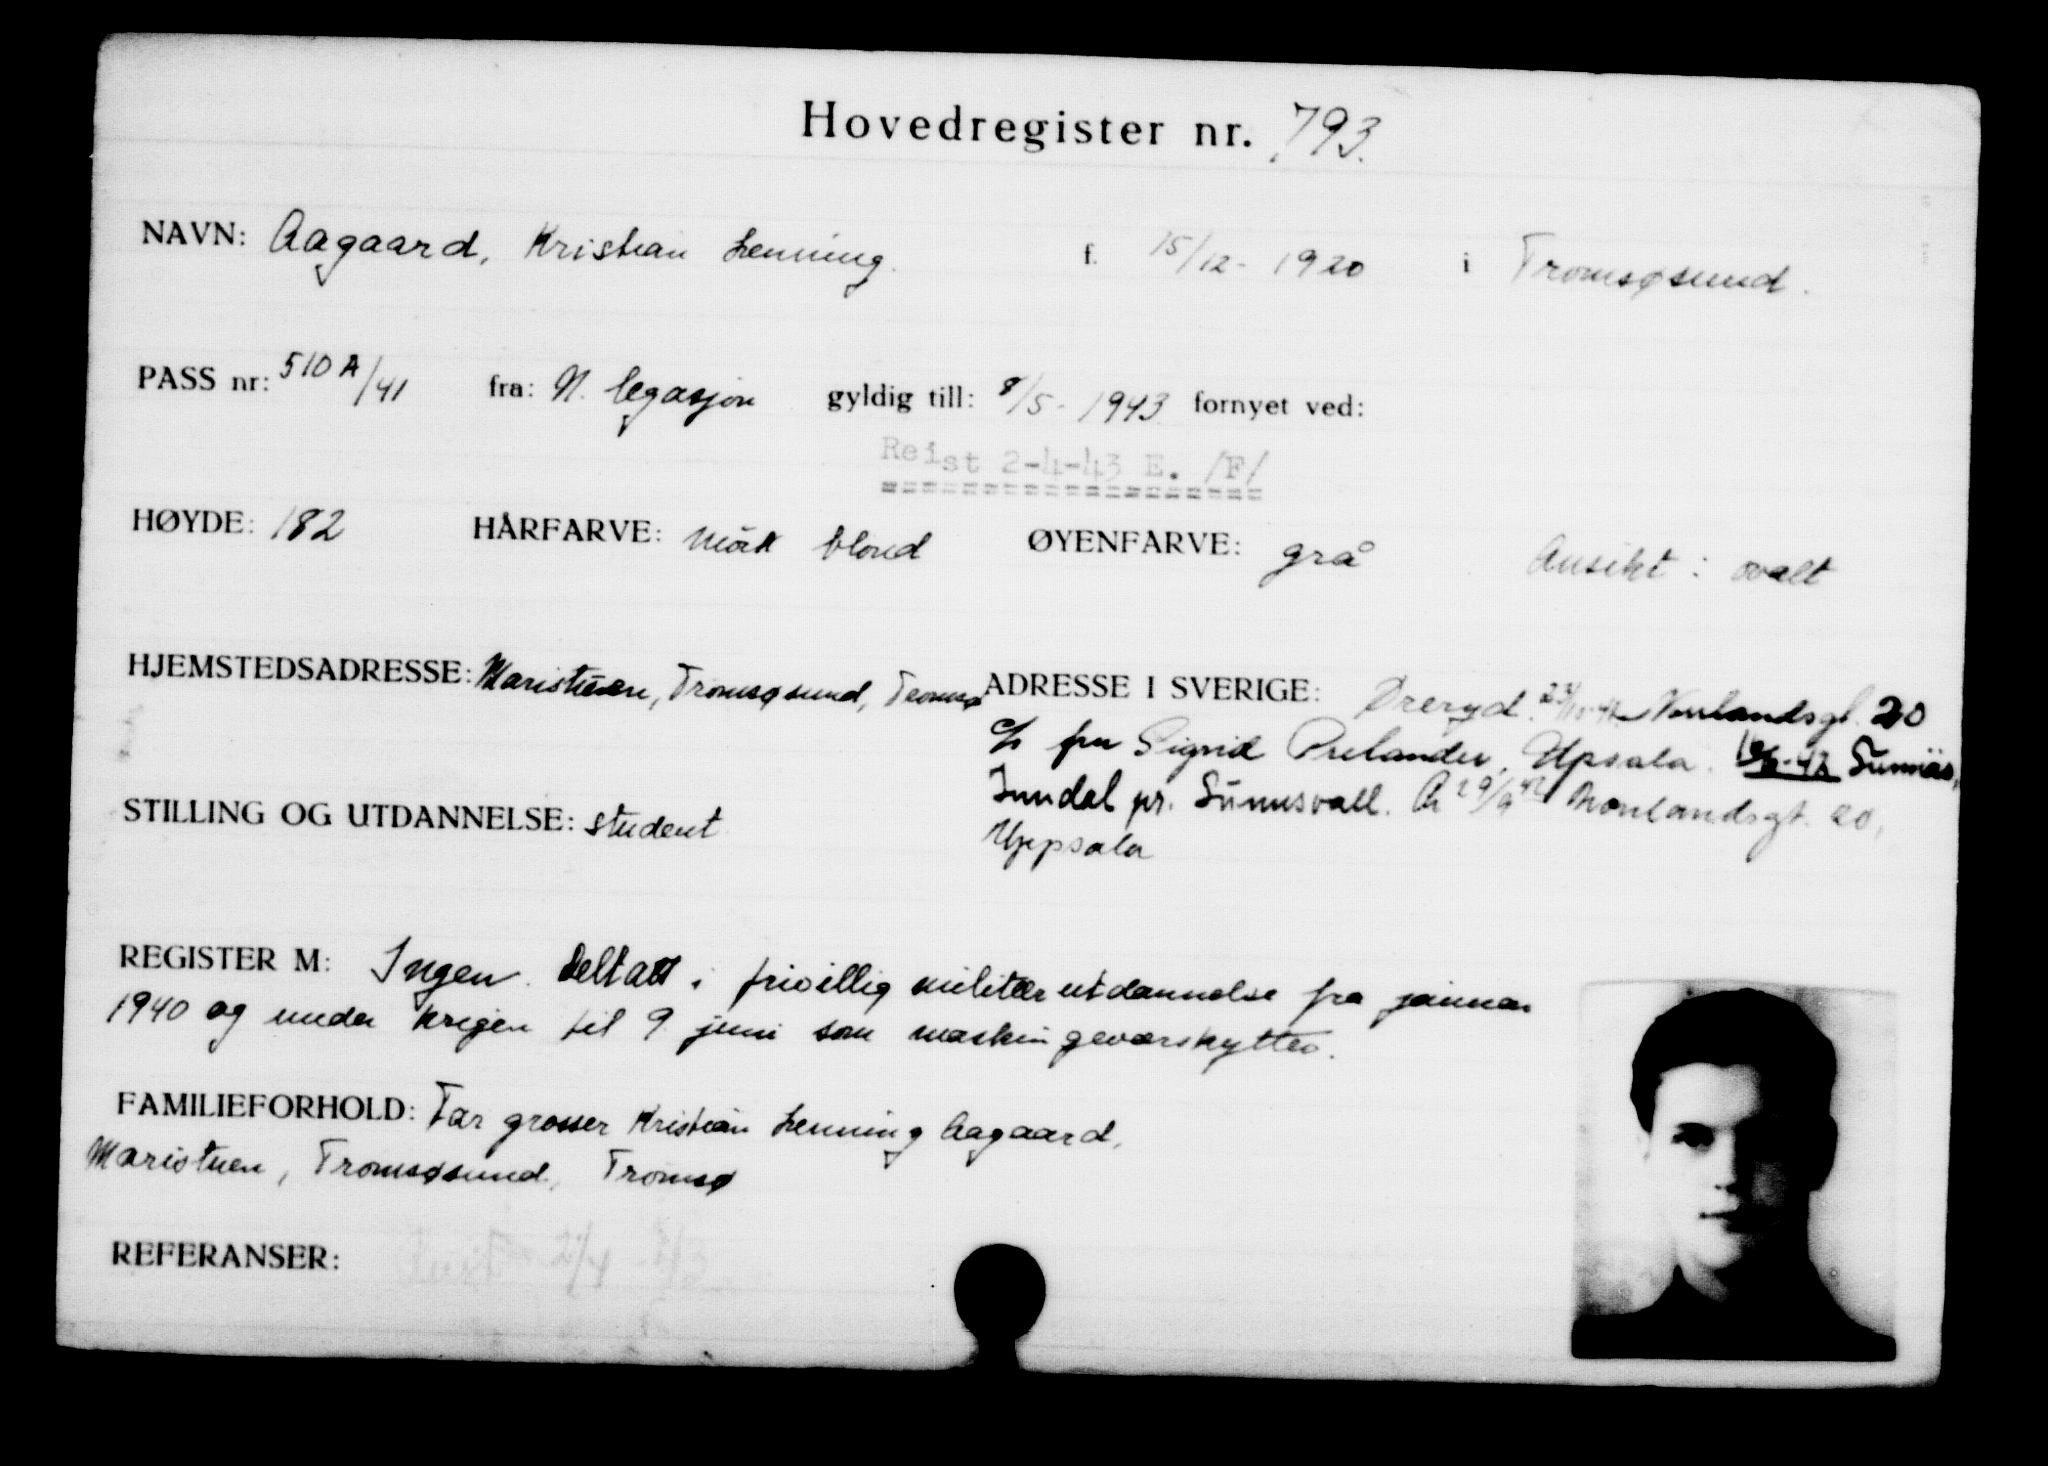 Hovedregister nr. 793.
NAVN: Aagaard, Kristian Lenning. f. 15/12 - 1920 i Tromsøsund.
PASS nr: 510 A/41 fra: N. legasjon gyldig till: 8/5 - 1943 fornyet ved:
Reist 2-4-43 E. /F/
HØYDE: 182 HÅRFARVE: mörk blond ØYENFARVE: grå Ansikt: ovalt
HJEMSTEDSADRESSE: Maristuen, Tromsøsund, Tromsø
ADRESSE I SVERIGE: Öreryd. Norrlandsgt. 20
c/o fru Sigrid Upsala. Sunnäs,
Indal pr. Sundsvall. 29/9 42 Norrlandsgt. 20,
Uppsala
STILLING OG UTDANNELSE: student
REGISTER M: Ingen. Deltatt i frivillig militær utdannelse fra januar
1940 og under krigen til 9 juni som maskingeværskytter.
FAMILIEFORHOLD: Far grosser Kristian Lenning Aagaard,
Maristuen, Tromsøsund, Tromsø
REFERANSER: